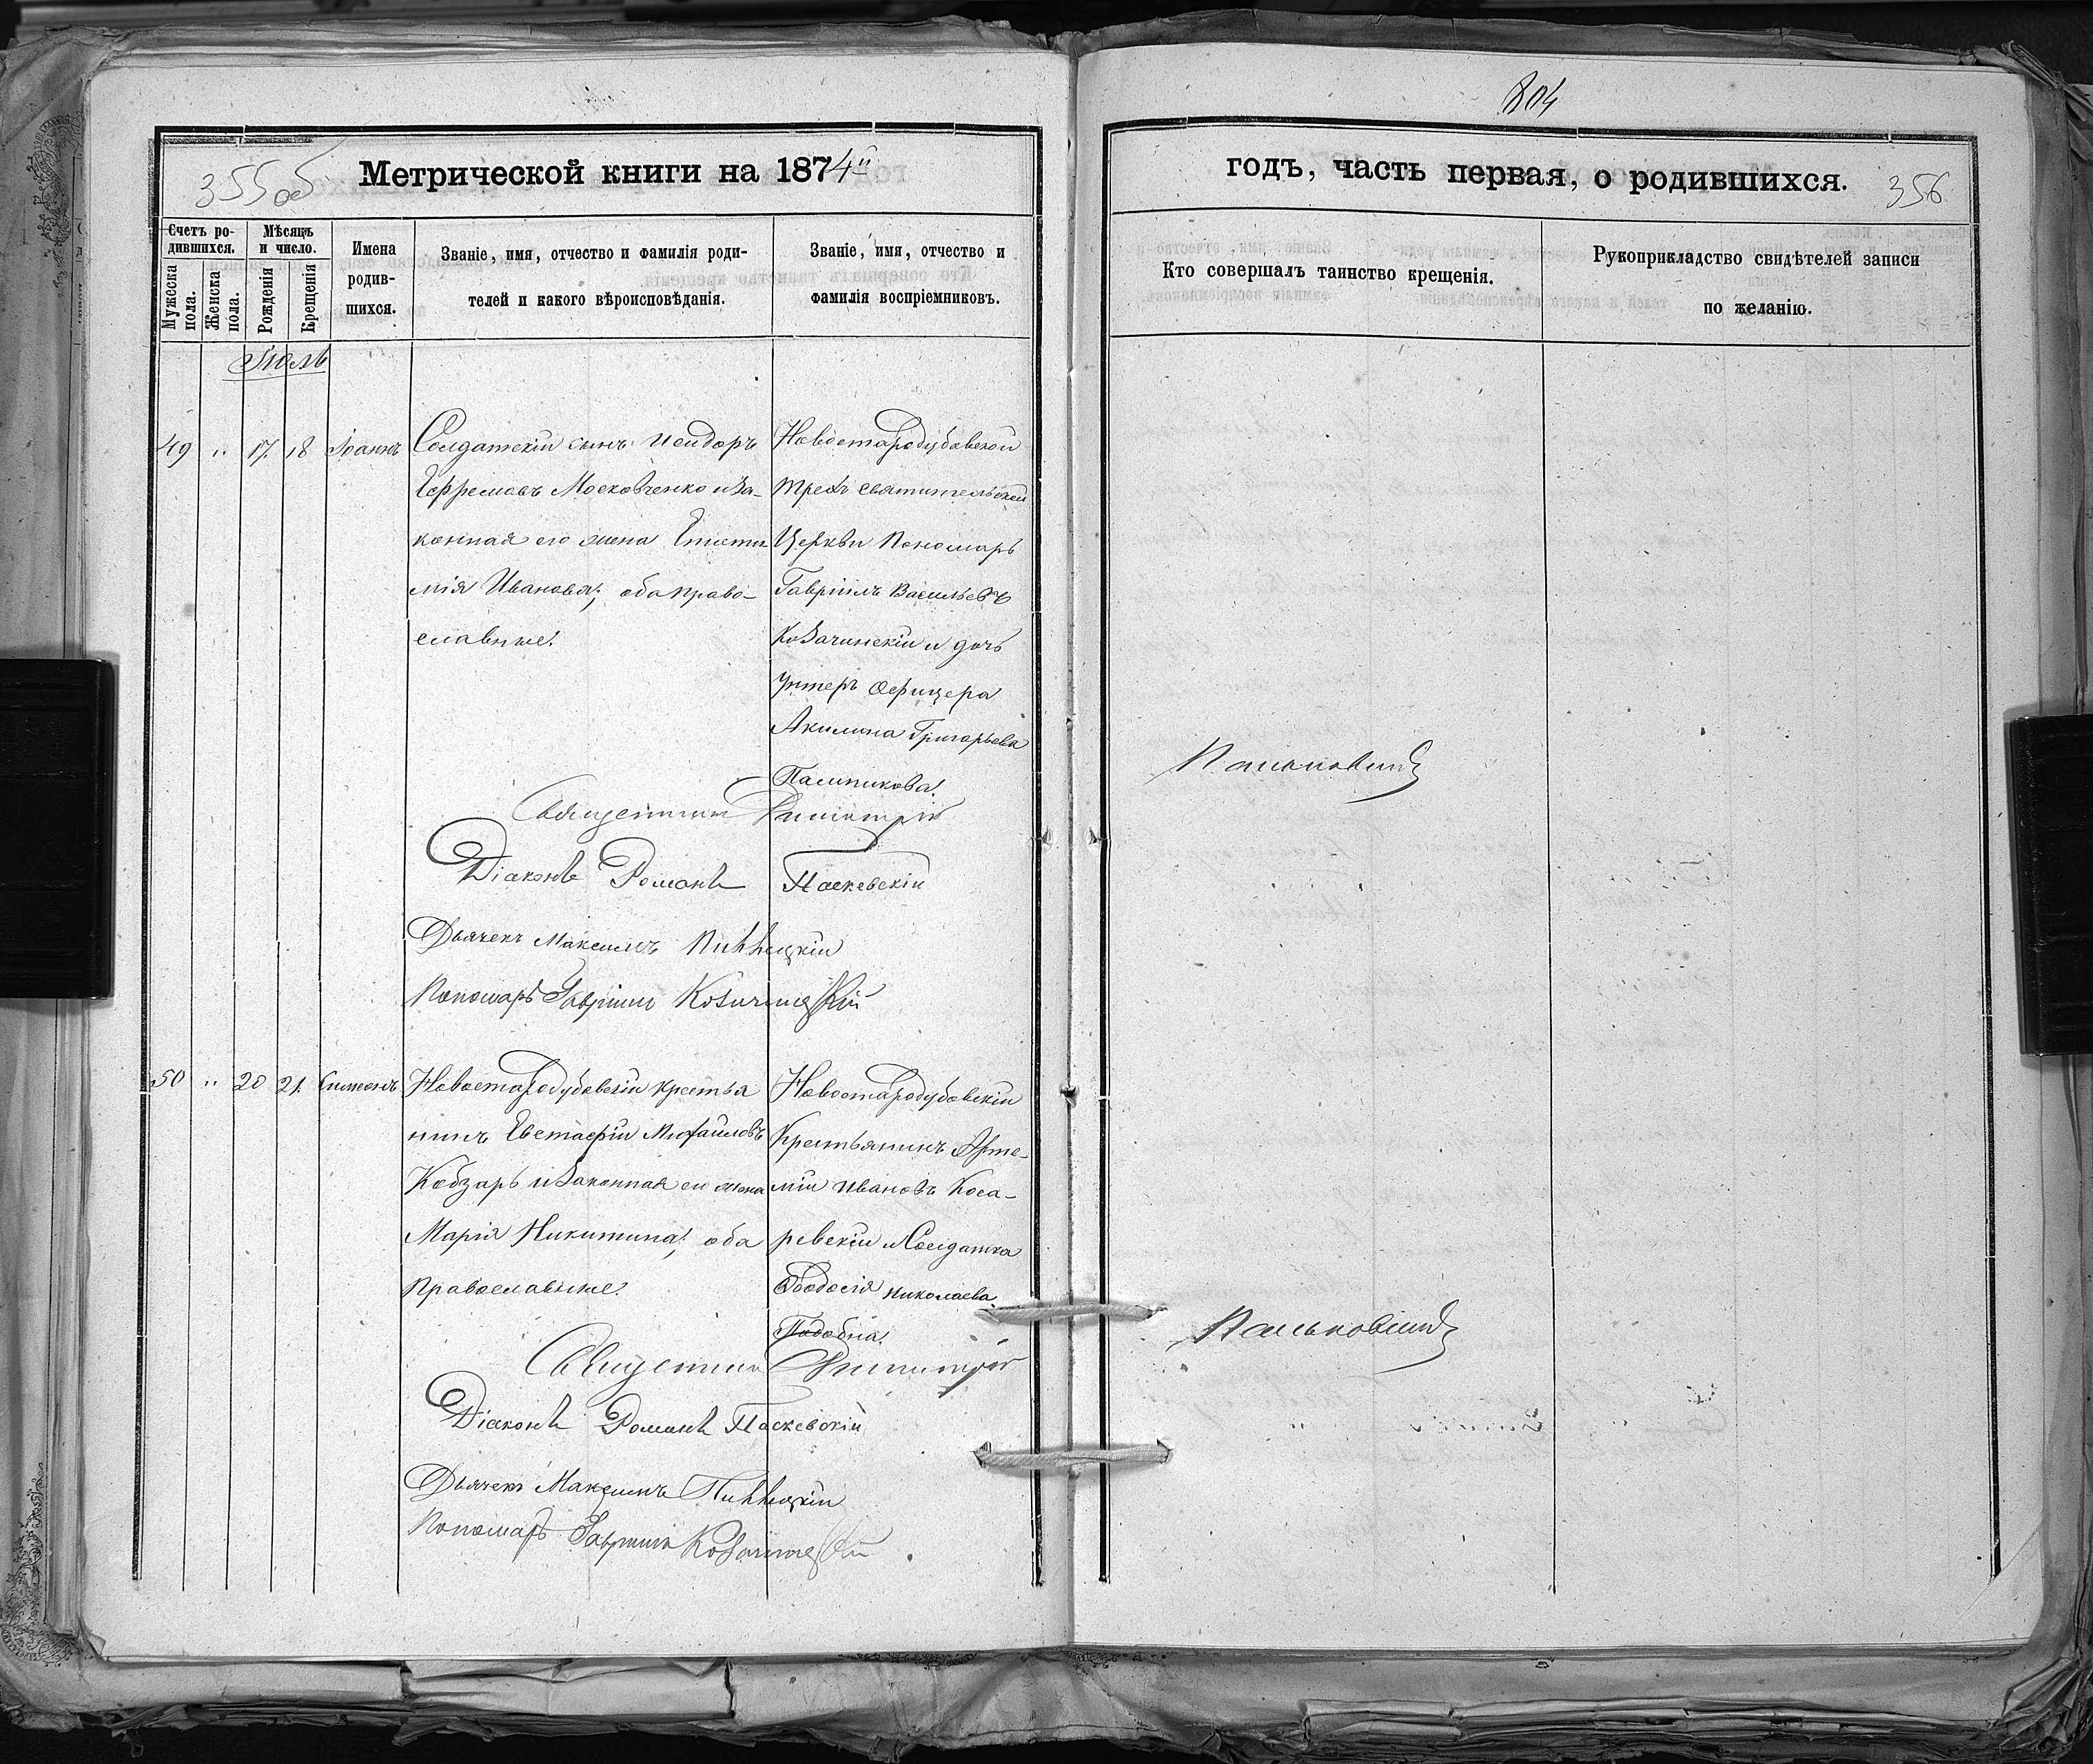 804
355об
Метрической книги на 1874й
годъ, часть первая, о родившихся.
356
Счетъ ро-
дившихся.
Мужеска
пола.
Женска
пола.
Мѣсяцъ
и число.
Рожденія
Крещенія
Имена
родив-
шихся.
Званіе, имя, отчество и фамилія роди-
телей и какого вѣроисповѣданія.
Званіе, имя, отчество и
фамилія воспріемниковъ.
Кто совершалъ таинство крещенія.
Рукоприкладство свидѣтелей записи
по желанію.
Іюль
49 " 17. 18 Іоаннъ
Солдатскій сынъ Исидоръ
Ефремовъ Московченко и за-
конная его жена Еписти-
мія Иванова; оба право-
славные.
Новостародубовской
Трехъ святительской
Церкви Пономарь
Гавріилъ Васильевъ
Козачинскій и дочь
Унтеръ Офицера
Акилина Григорьева
Пасишкова.
Священникъ Димитрій
Пальковинъ
Діаконъ Романъ Паскевскій
Дьячекъ Максимъ
Пономарь Гавріилъ Козачинскій
50 " 20 21. Симеонъ
Новостародубовскій крестья
нинъ Евстафій Михайловъ
Кобзарь и законная его жена
Марія Никитина; оба
Православные.
Новостародубовскій
Крестьянинъ Арте-
мій Ивановъ Коса-
ревскій и Солдатка
Ѳеодосія Николаева
Священникъ Димитрій
Пальковинъ
Діаконъ Романъ Паскевскій
Дьячекъ Максимъ
Пономарь Гавріилъ Козачинскій